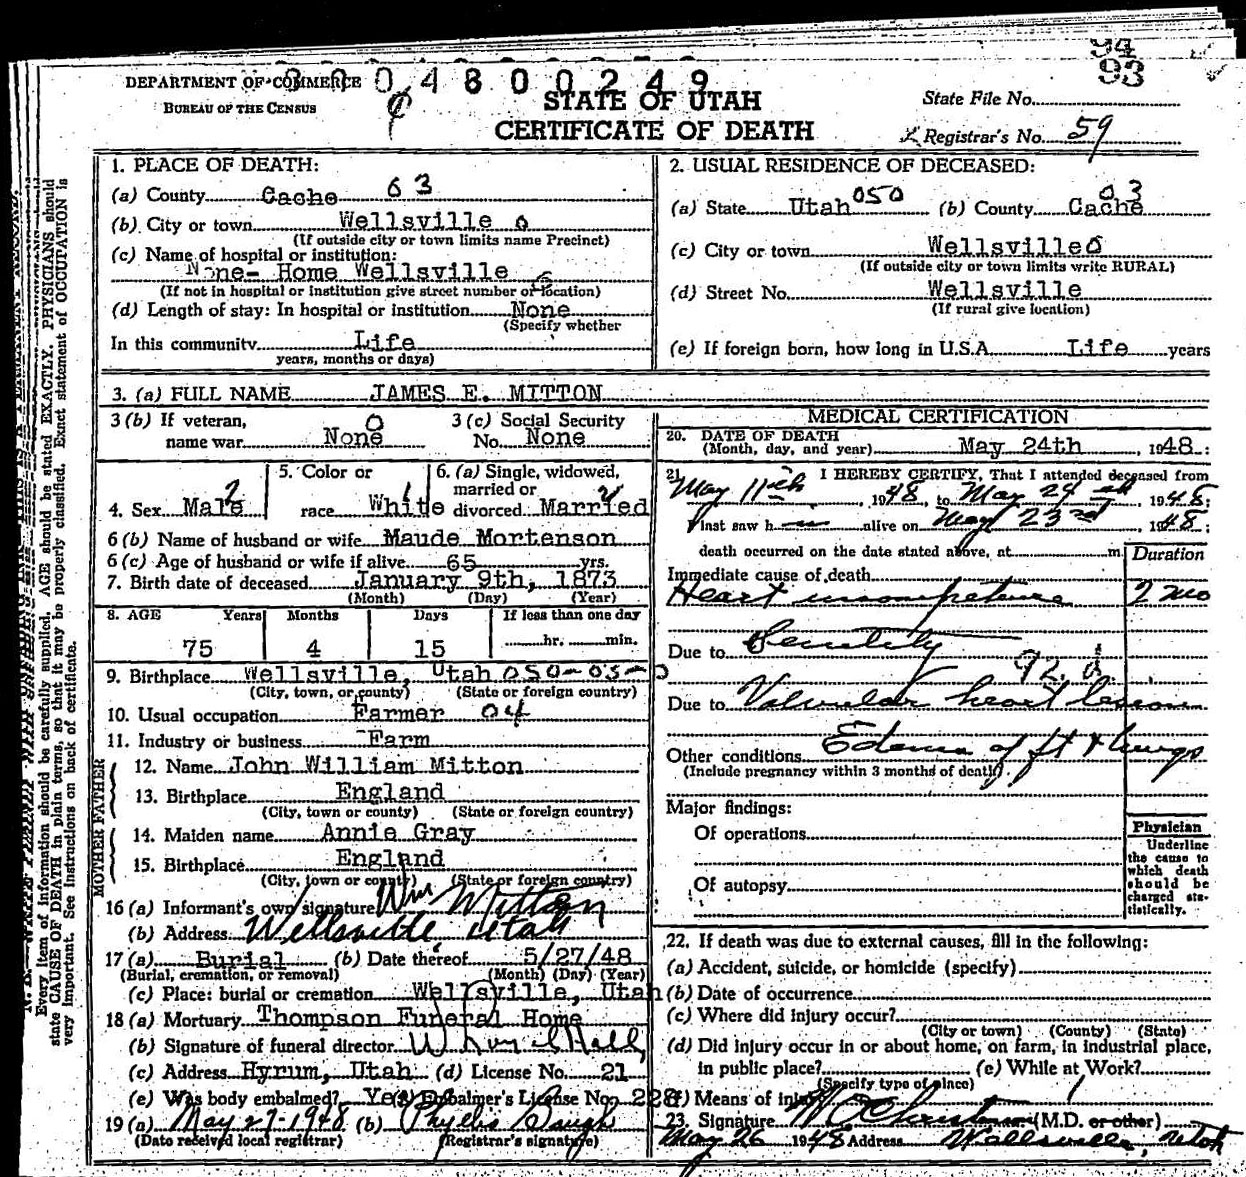 94
93
DEPARTMENT OF COMMERCE
BUREAU OF THE CENSUS
0 4 8 0 0 2 4 9
STATE OF UTAH
CERTIFICATE OF DEATH
State File No.
Registrar's No. 59
1. PLACE OF DEATH:
(a) County Cache 63
(b) City or town Wellsville 0
(If outside city or town limits name Precinct)
(c) Name of hospital or institution:
None- Home Wellsville
(If not in hospital or institution give street number or location)
(d) Length of stay: In hospital or institution None
(Specify whether
In this community Life
years, months or days)
2. USUAL RESIDENCE OF DECEASED:
(a) State Utah 050 (b) County Cache 03
(c) City or town Wellsville 0
(If outside city or town limits write RURAL)
(d) Street No. Wellsville
(If rural give location)
(e) If foreign born, how long in U.S.A. Life years
3. (a) FULL NAME JAMES E. MITTON
3 (b) If veteran, 0
name war None
3 (c) Social Security
No. None
4. Sex Male 2
5. Color or
race White 1
6. (a) Single, widowed,
married or
divorced Married
6 (b) Name of husband or wife Maude Mortenson
6 (c) Age of husband or wife if alive 65 yrs.
7. Birth date of deceased January 9th, 1873
(Month) (Day) (Year)
8. AGE Years Months Days If less than one day
75 4 15 hr. min.
9. Birthplace Wellsville, Utah 050-03-0
(City, town, or county) (State or foreign country)
10. Usual occupation Farmer 04
11. Industry or business Farm
FATHER
12. Name John William Mitton
13. Birthplace England
(City, town or county) (State or foreign country)
MOTHER
14. Maiden name Annie Gray
15. Birthplace England
(City, town or county) (State or foreign country)
16 (a) Informant's own signature Wm Mitton
(b) Address Wellsville, Utah
17 (a) Burial (b) Date thereof 5/27/48
(Burial, cremation, or removal) (Month) (Day) (Year)
(c) Place: burial or cremation Wellsville, Utah
18 (a) Mortuary Thompson Funeral Home
(b) Signature of funeral director Hall
(c) Address Hyrum, Utah (d) License No. 21
(e) Was body embalmed? Yes (f) Embalmer's License No. 228
19 (a) May 27-1948 (b) Phyllis Baugh
(Date received local registrar) (Registrar's signature)
MEDICAL CERTIFICATION
20. DATE OF DEATH
(Month, day, and year) May 24th 1948
21. I HEREBY CERTIFY, That I attended deceased from
May 11th, 1948, to May 24th 1948;
I last saw him alive on May 23rd, 1948;
death occurred on the date stated above, at m.
Duration
Immediate cause of death
Heart incompetence 2 mo
Due to Senility
92.
Due to Valvular heart lesion
Other conditions Edema of ft & lungs
(Include pregnancy within 3 months of death)
Major findings:
Of operations
Of autopsy
Physician
Underline
the cause to
which death
should be
charged sta-
tistically.
22. If death was due to external causes, fill in the following:
(a) Accident, suicide, or homicide (specify)
(b) Date of occurrence
(c) Where did injury occur?
(City or town) (County) (State)
(d) Did injury occur in or about home, on farm, in industrial place,
in public place? (e) While at Work?
(Specify type of place)
(f) Means of injury
23. Signature (M.D. or other)
May 26 1948 Address Wellsville, Utah
Every item of information should be carefully supplied. AGE should be stated EXACTLY. PHYSICIANS should
state CAUSE OF DEATH in plain terms, so that it may be properly classified. Exact statement of OCCUPATION is
very important. See instructions on back of certificate.